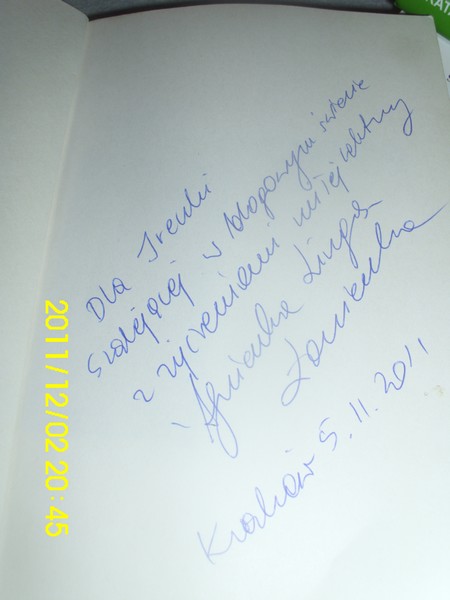 Dla Irenki
szalejącej w blogowym świecie
z życzeniami miłej lektury
Agnieszka Lingas
Łoniewska
Kraków 5.11.2011
2011/12/02 20:45